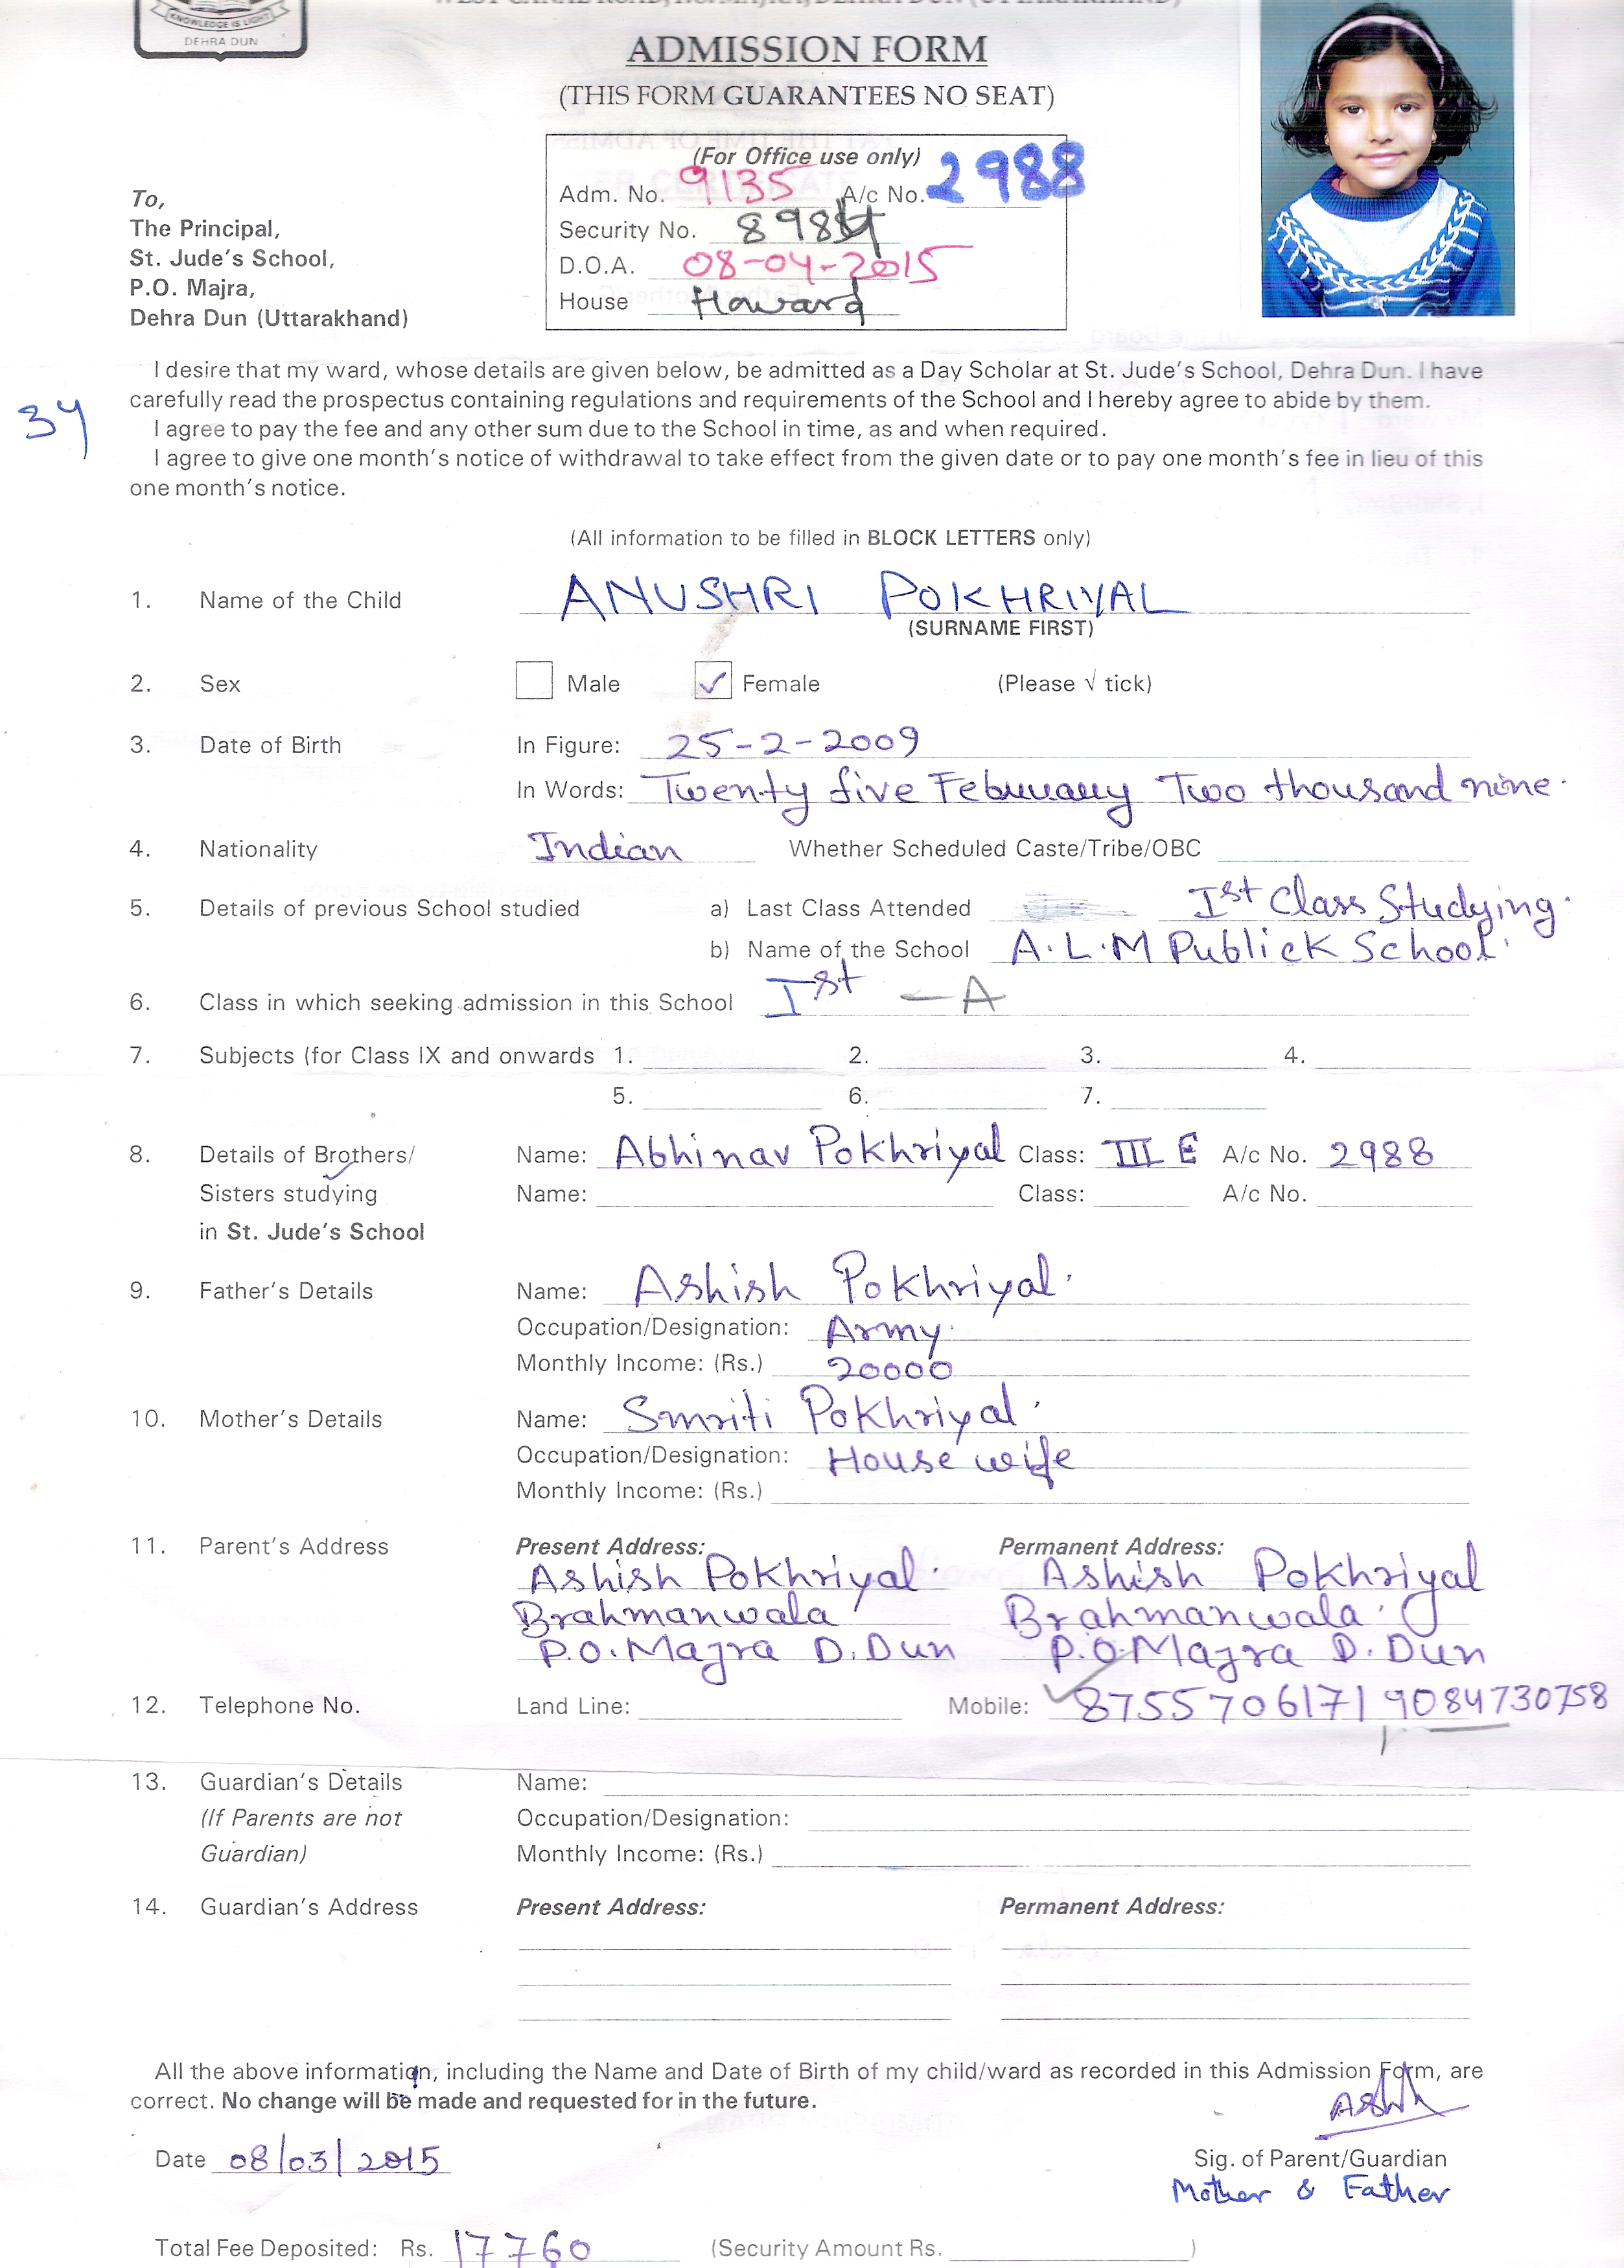 KNOWLEDGE IS LIGHT
DEHRA DUN
ADMISSION FORM
(THIS FORM GUARANTEES NO SEAT)
(For Office use only)
Adm. No. 9135 A/c No. 2988
Security No.
D.O.A. 08-04-2015
House Howard
To,
The Principal,
St. Jude's School,
P.O. Majra,
Dehra Dun (Uttarakhand)
I desire that my ward, whose details are given below, be admitted as a Day Scholar at St. Jude's School, Dehra Dun. I have
carefully read the prospectus containing regulations and requirements of the School and I hereby agree to abide by them.
34
I agree to pay the fee and any other sum due to the School in time, as and when required.
I agree to give one month's notice of withdrawal to take effect from the given date or to pay one month's fee in lieu of this
one month's notice.
(All information to be filled in BLOCK LETTERS only)
1. Name of the Child ANUSHRI POKHRIYAL
(SURNAME FIRST)
2. Sex Male ✓ Female (Please √ tick)
3. Date of Birth In Figure: 25-2-2009
In Words: Twenty five Februuary Two thousand nine.
4. Nationality Indian Whether Scheduled Caste/Tribe/OBC
5. Details of previous School studied a) Last Class Attended Ist Class Studying.
b) Name of the School A.L.M Publick School.
6. Class in which seeking admission in this School Ist - A
7. Subjects (for Class IX and onwards 1. 2. 3. 4.
5. 6. 7.
8. Details of Brothers/ Name: Abhinav Pokhriyal Class: III E A/c No. 2988
Sisters studying Name: Class: A/c No.
in St. Jude's School
9. Father's Details Name: Ashish Pokhriyal.
Occupation/Designation: Army.
Monthly Income: (Rs.) 20000
10. Mother's Details Name: Smriti Pokhriyal.
Occupation/Designation: House wife
Monthly Income: (Rs.)
11. Parent's Address Present Address: Permanent Address:
Ashish Pokhriyal. Ashish Pokhriyal
Brahmanwala Brahmanwala.
P.O. Majra D. Dun P.O Majra D. Dun
12. Telephone No. Land Line: Mobile: 8755706171 9084730758
13. Guardian's Details Name:
(If Parents are not Occupation/Designation:
Guardian) Monthly Income: (Rs.)
14. Guardian's Address Present Address: Permanent Address:
All the above information, including the Name and Date of Birth of my child/ward as recorded in this Admission Form, are
correct. No change will be made and requested for in the future.
Date 08/03/2015 Sig. of Parent/Guardian
Mother & Father
Total Fee Deposited: Rs. 17760 (Security Amount Rs. )